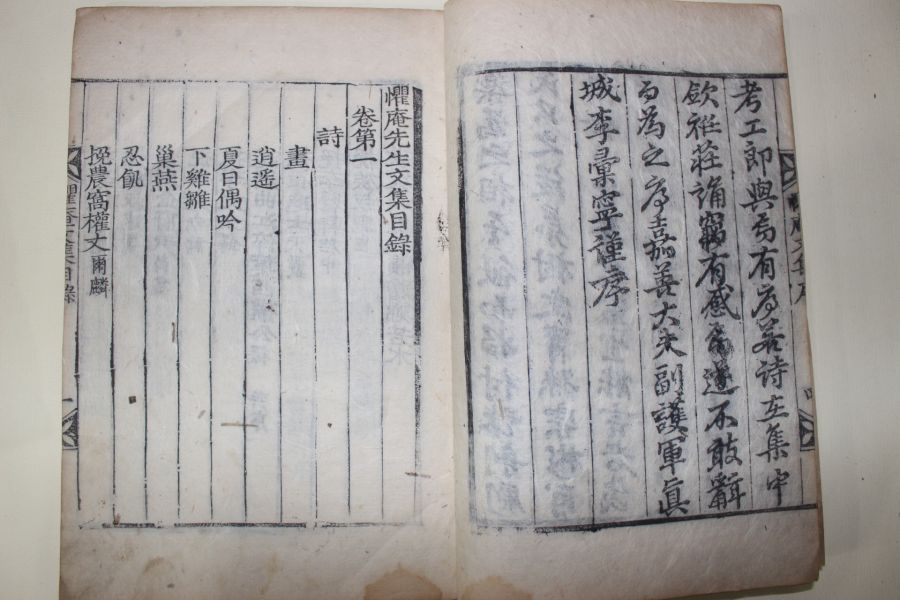 考工郎與焉有序若詩在集中
欽袵莊誦竊有感焉遂不敢辭
而為之序嘉善大夫副護軍眞
城李彙寧謹序
懼庵先生文集目錄
卷第一
詩
畫
逍遙
夏日偶吟
下雞雛
巢燕
忍飢
挽農窩權丈爾麟
懼庵文集目錄
一